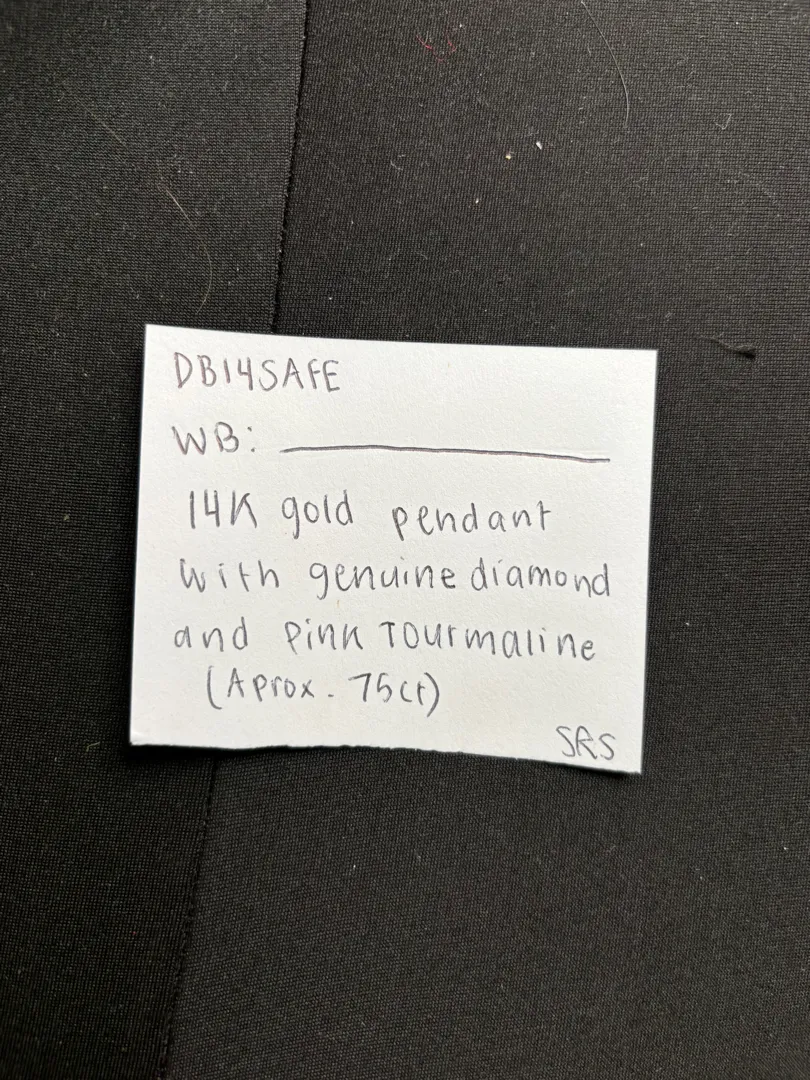 DB14SAFE
WB: ____________
14K gold pendant
with genuine diamond
and pink Tourmaline
(Aprox. 75ct)
SRS